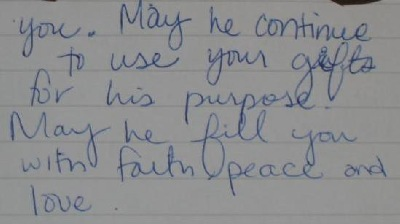 you. May he continue
to use your gifts
for his purpose.
May he fill you
with faith peace and
love.